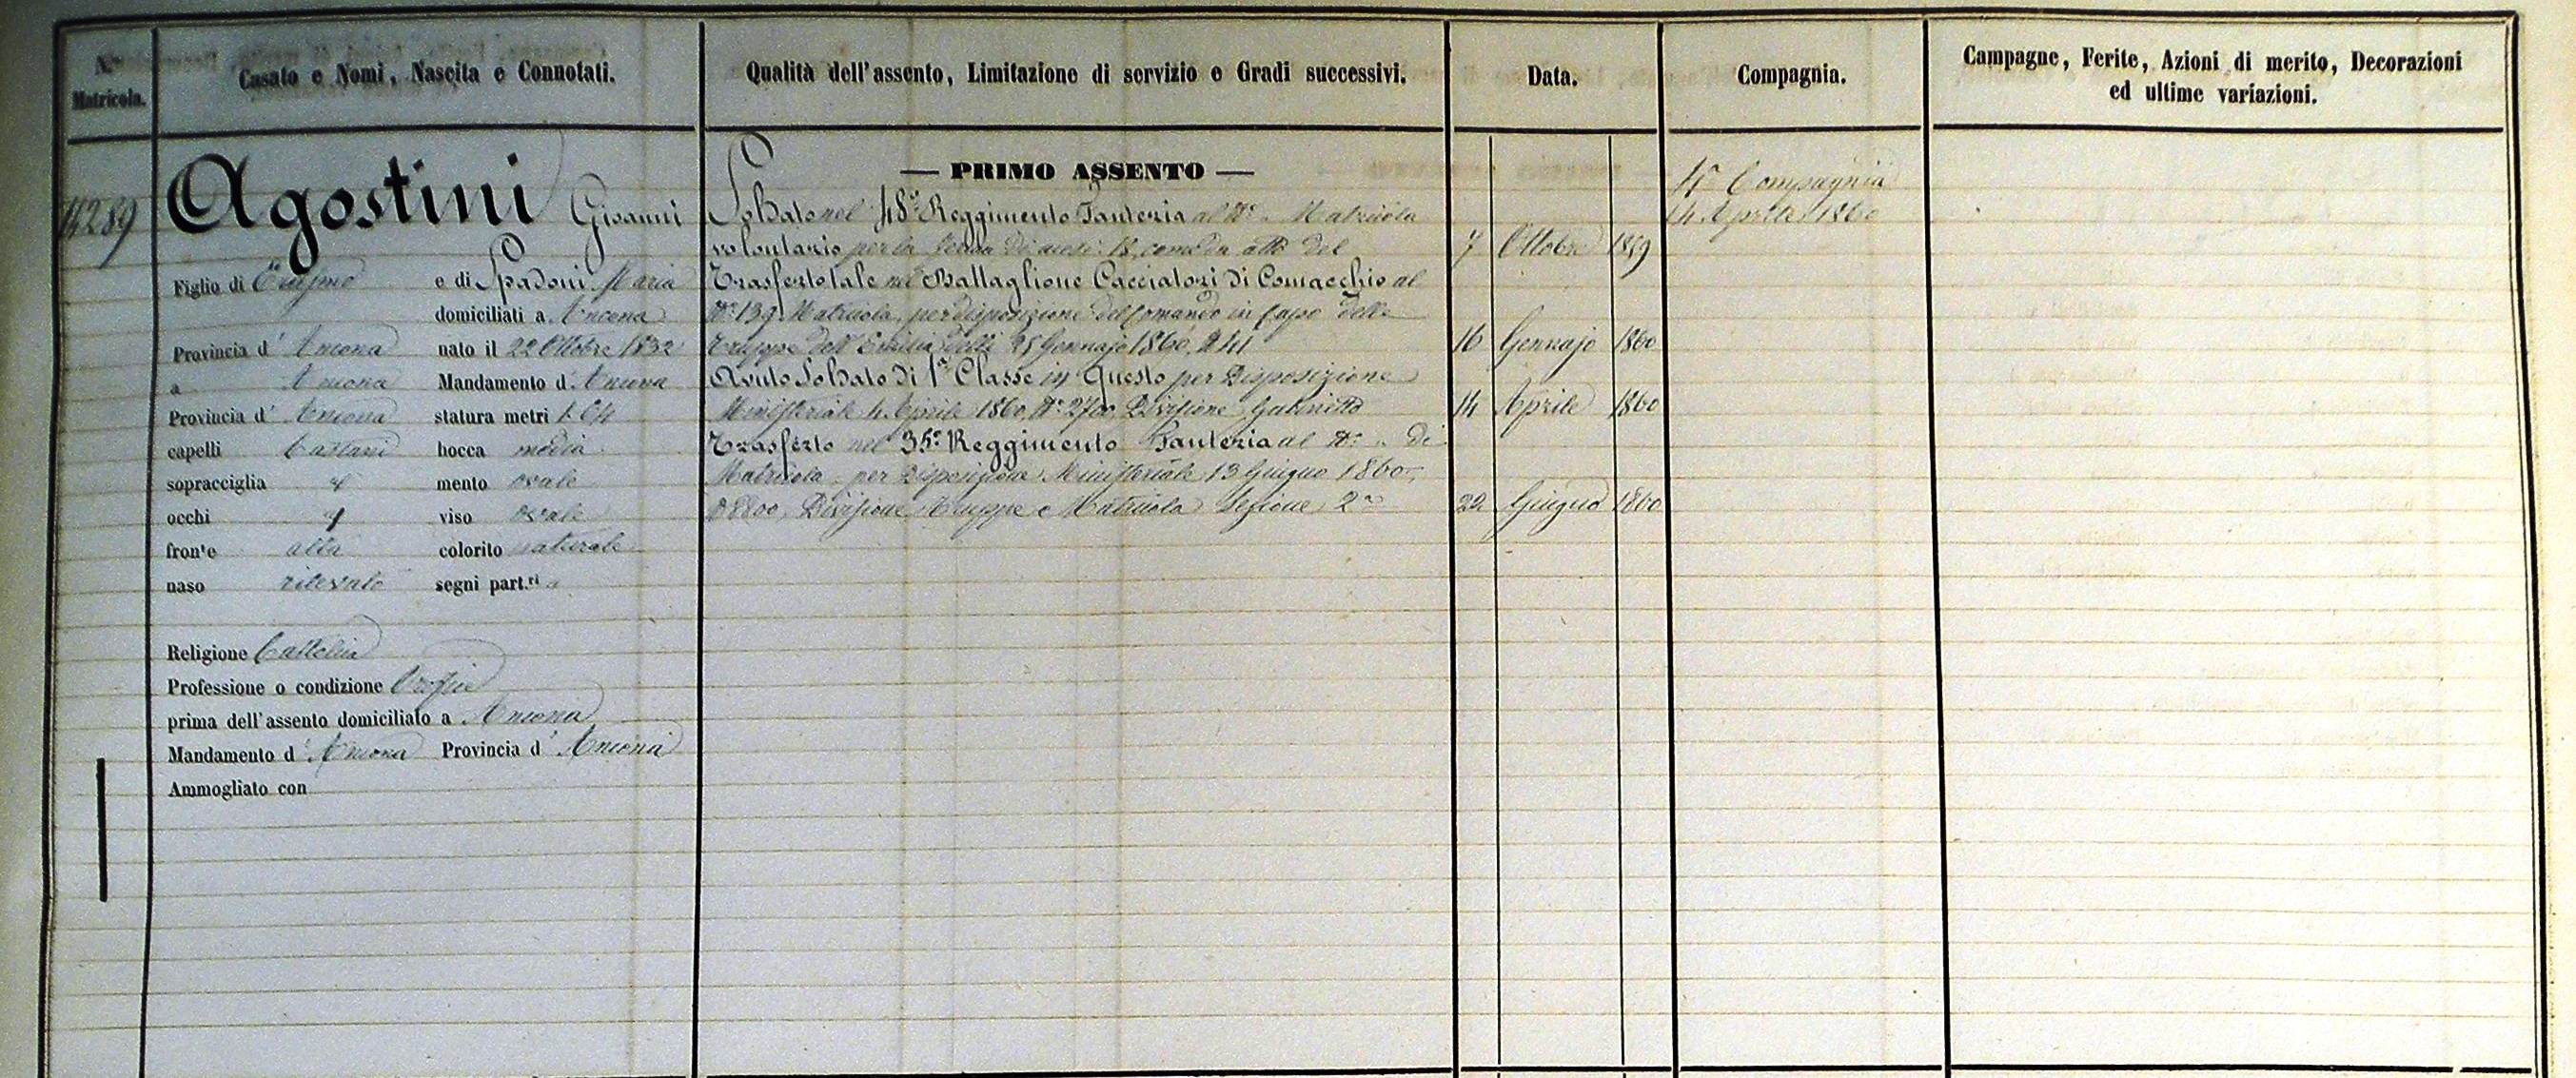 N.° Matricola.
Casato e Nomi, Nascita e Connotati.
Qualità dell'assento, Limitazione di servizio e Gradi successivi.
Data.
Compagnia.
Campagne, Ferite, Azioni di merito, Decorazioni
ed ultime variazioni.
14289
Agostini Giovanni
Figlio di Erasmo e di Spadoni Maria
domiciliati a Ancona
Provincia d' Ancona nato il 22 Ottobre 1832
a Ancona Mandamento d' Ancona
Provincia d' Ancona statura metri 1.64
capelli Castani bocca media
sopracciglia mento ovale
occhi viso ovale
fronte alta colorito naturale
naso rilevato segni part.ri "
Religione Cattolica
Professione o condizione Orefice
prima dell'assento domiciliato a Ancona
Mandamento d' Ancona Provincia d' Ancona
Ammogliato con
— PRIMO ASSENTO —
Soldato nel 48° Reggimento Fanteria al N° " Matricola
volontario per la ferma di mesi 18, come da atto del 7 Ottobre 1859
Trasferto tale nel Battaglione Cacciatori di Comacchio al
N° 139 Matricola, per disposizione del Comando in Capo delle
Truppe dell'Emilia delli 25 Gennajo 1860, 16 Gennajo 1860
Avuto Soldato di 1ª Classe in Questo per Disposizione
Ministeriale 4 Aprile 1860, N° 2700, Divisione Gabinetto 14 Aprile 1860
Trasferto nel 35° Reggimento Fanteria al N° " di
Matricola per Disposizione Ministeriale 13 Giugno 1860,
Divisione Truppe e Matricola Sezione 2ª 22 Giugno 1860
4ª Compagnia
14 Aprile 1860